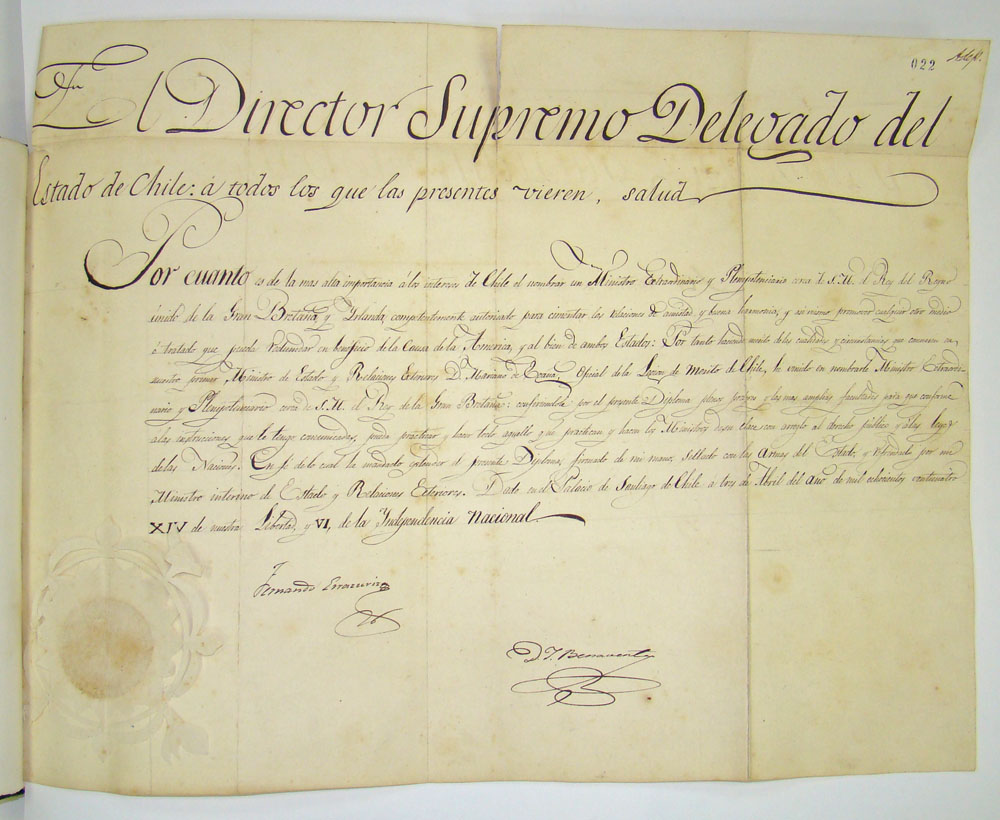 022
El Director Supremo Delegado del
Estado de Chile: á todos los que las presentes vieren, salud
Por cuanto es de la mas alta importancia á los intereses d Chile el nombrar un Ministro Extraordinario y Plenipotenciario cerca d S.M. el Rey del Reyno
unido de la Gran Bretaña, y Irlanda, competentemente autorizado para cimentar las relaciones de amistad y buena harmonia, y asi mismo promover cualquier otro
ó tratado que pueda redundar en beneficio de la Causa de la America, y al bien de ambos Estados: Por tanto haciendo merito de las cualidades y circunstancias que concurren en
nuestro primer Ministro de Estado y Relaciones Exteriores D. Mariano de Egaña, Oficial de la Legion de Merito de Chile, he venido en nombrarle Ministro Extraordi-
nario y Plenipotenciario cerca de S.M. el Rey de la Gran Bretaña: confiriendole por el presente Diploma plenos poderes y las mas amplias facultades para que conforme
a las instrucciones que le tengo comunicadas, pueda practicar y hacer todo aquello que practican y hacen los Ministros desu clase con arreglo al derecho público y alas leyes
delas Naciones. En fe delo cual he mandado extender el presente Diploma, firmado de mi mano, sellado con las Armas del Estado, y refrendado por mi
Ministro interino de Estado y Relaciones Exteriores. Dado en el Palacio de Santiago de Chile a tres de Abril del año de mil ochocientos veinticuatro
XIV de nuestra Libertad, y VI, de la Independencia Nacional.
Fernando Errazuriz
D J. Benavente